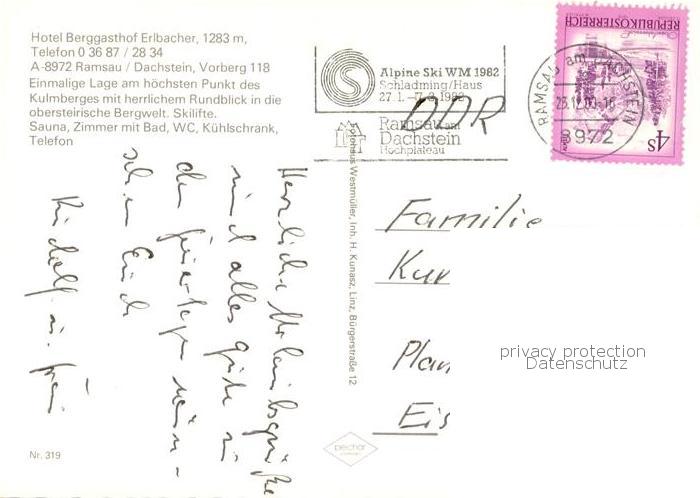 Hotel Berggasthof Erlbacher, 1283 m,
Telefon 0 36 87 / 28 34
A-8972 Ramsau / Dachstein, Vorberg 118
Einmalige Lage am höchsten Punkt des
Kulmberges mit herrlichem Rundblick in die
obersteirische Bergwelt. Skilifte.
Sauna, Zimmer mit Bad, WC, Kühlschrank,
Telefon
Alpine Ski WM 1982
Schladming/Haus
27.1. –
1982
DDR
Ramsau am
Dachstein
Hochplateau
REPUBLIK ÖSTERREICH
4S
RAMSAU am DACHSTEIN
8972
Herzliche Urlaubsgrüße
und alles Gute zu
den Feiertagen wün-
schen Euch
Rudolf u.
Fotohaus Westmüller, Inh. H. Kunasz, Linz, Bürgerstraße 12
Familie
Kur
Plan
Eis
privacy protection
Datenschutz
Nr. 319